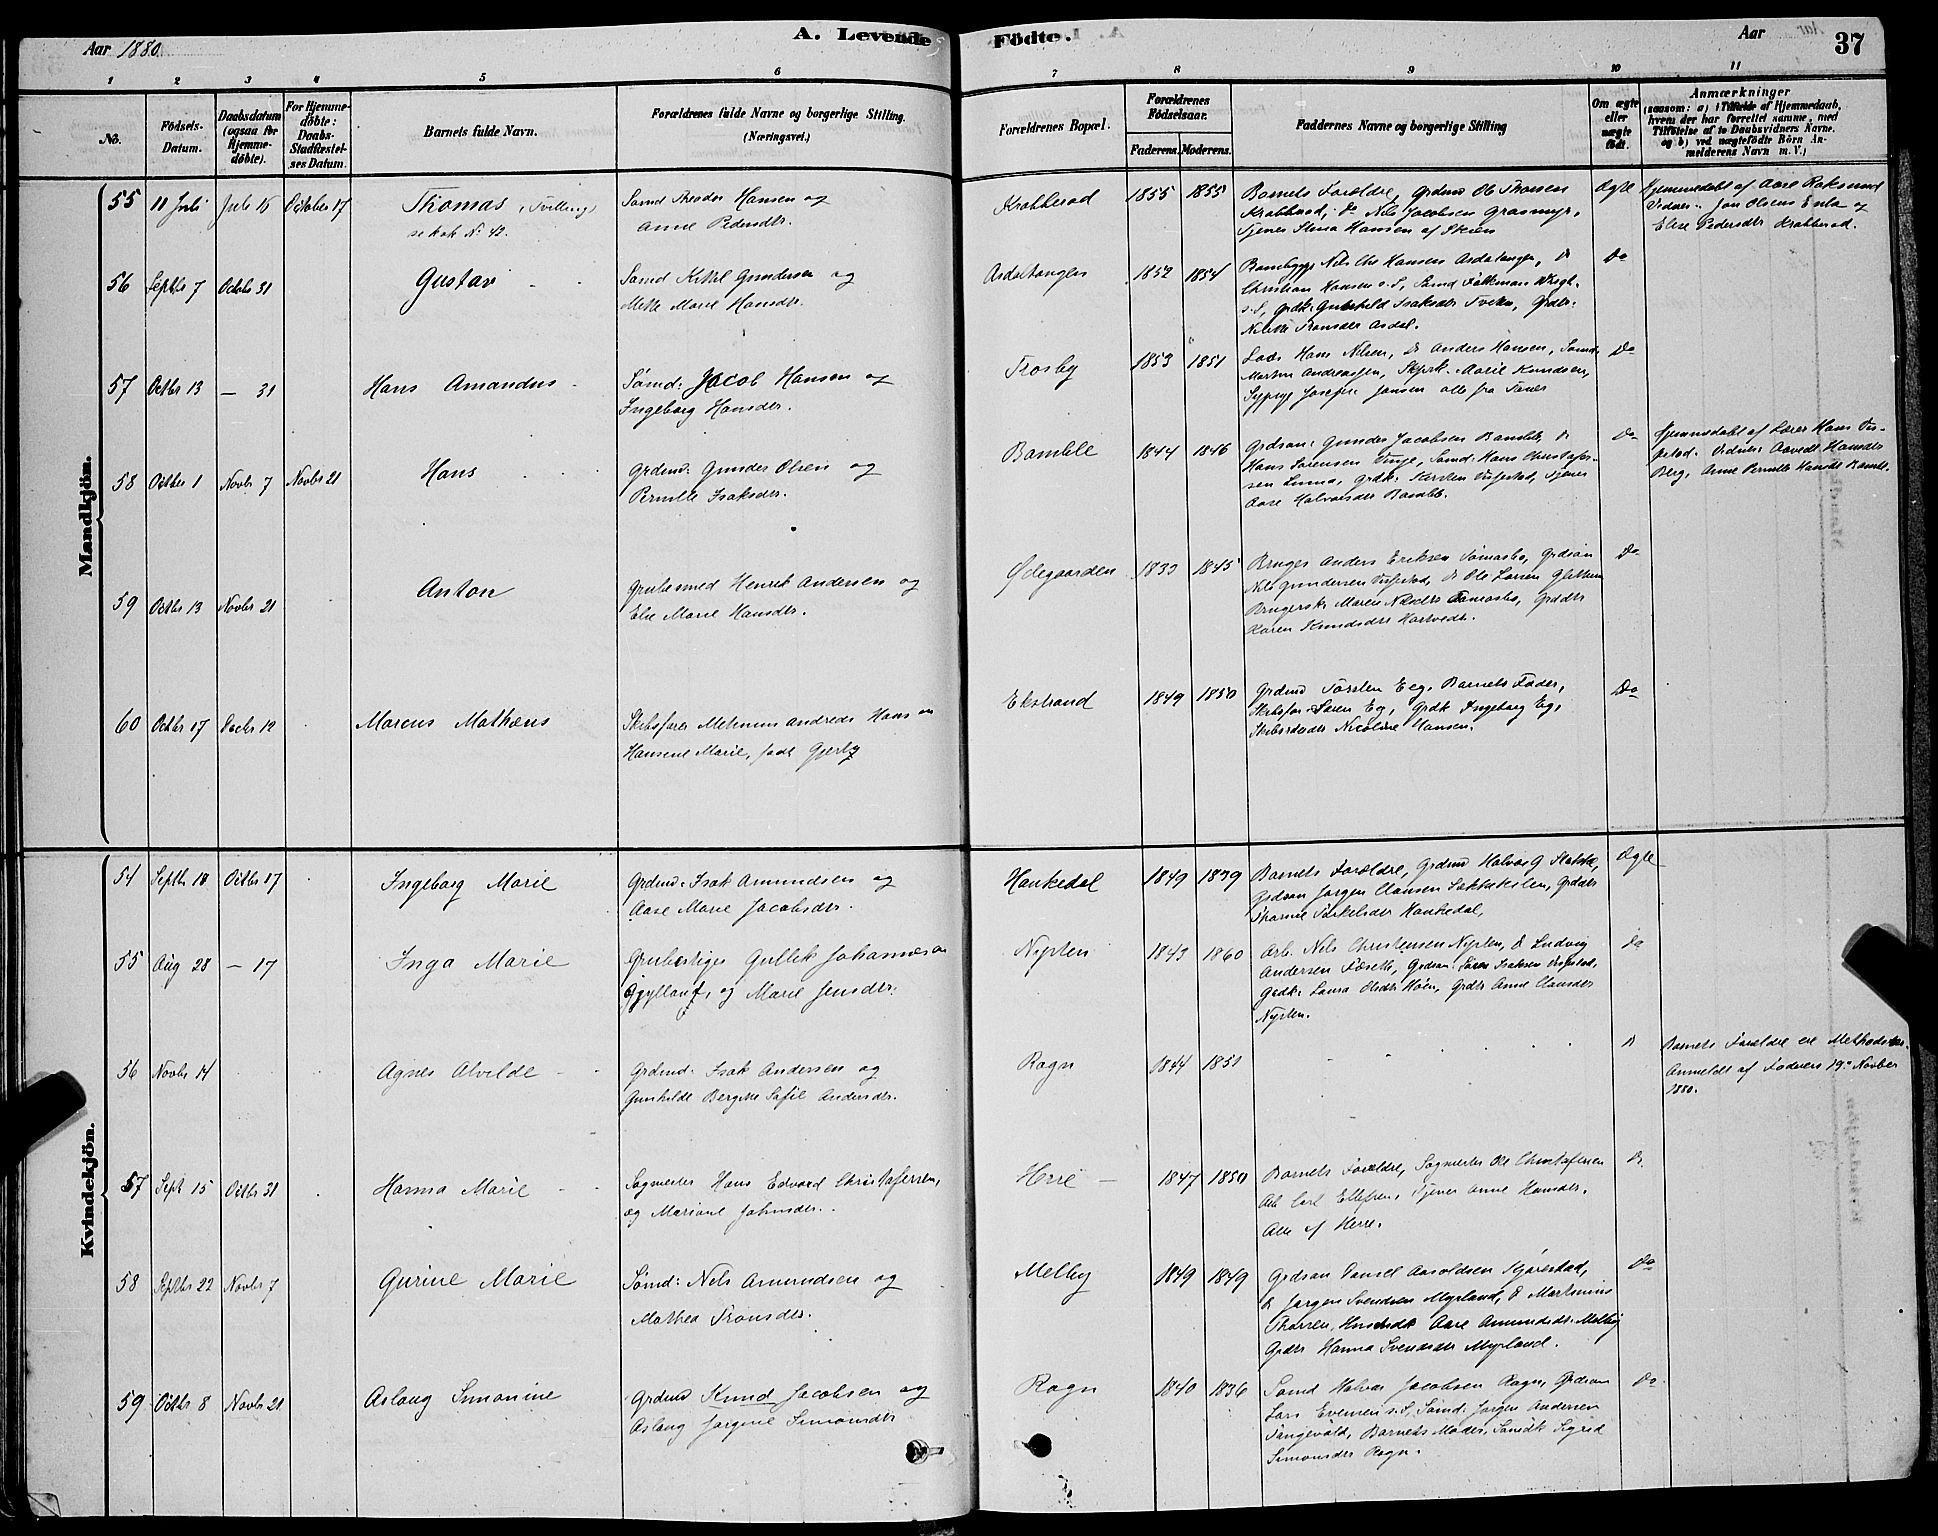 Aar 1880.
A. Levende
Födte.
Aar
37
1 2 3 4 5 6 7 8 9 10 11
No.
Födsels-Datum.
Daabsdatum (ogsaa for Hjemme-döbte).
For Hjemme-döbte: Daabs-Stadfæstel-ses Datum.
Barnets fulde Navn.
Forældrenes fulde Navne og borgerlige Stilling. (Næringsvei.)
Forældrenes Bopæl.
Forældrenes Födselsaar.
Faderens. Moderens.
Faddernes Navne og borgerlige Stilling
Om ægte eller uægte födt.
Anmærkninger
(saasom: a) i Tilfælde af Hjemmedaab, hvem der har forrettet samme, med Tilföielse af to Daabsvidners Navne, og b) ved uægtefödte Börn An-melderens Navn m. V.)
Mandkjön.
55 11 Juli Juli 15 October 17 Thomas, (Tvilling)
se kok N: 42.
Sømd Hansen og
Anne Pedersdtr.
Krabberød 1855 1855
Barnets Forældre, Grdmd Ole Thorsen
Krabberød, Do Nils Jacobsen Grasmyr,
Tjener Stina Hansen af Skien
Ægte
Hjemmedøbt af Aase
Vidner: Jon Olsens Enke og
Elise Pedersdtr Krabberød.
56 Septbr 7 Octobr 31 Gustav
Sømd Kittil Gundersen og
Mette Marie Hansdtr.
Asdaltangen 1852 1854
Nils Chr Hansen Asdaltangen, Do
Christian Hansen s.S, Sømd
s.S, Grdk: Gunhild Isaksdtr Tveten, Grdtr:
Asdal.
Do
57 Octbr 13 — 31 Hans Amandus
Sømd: Jacob Hansen og
Ingeborg Hansdtr.
Trosby 1853 1851
Lods Hans Nilsen, Do Anders Hansen, Sømd.
Martin Andreassen, Skprk. Marie Knudsen,
Sypige Josefine Jansen alle fra
Do
58 Octbr 1 Novbr 7 Novbr 21 Hans
Grdmd: Gunder Olsen og
Pernille Isaksdtr.
Bamble 1844 1846
Grdsøn: Gunder Jacobsen Bamble, Do
Hans Sørensen Vinje, Sømd: Hans Christofer-
sen Grdk: Vissestad, Tjener
Aase Halvorsdtr Bamble.
Do
Hjemmedøbt af Lærer Hans Vis-
sestad. Vidner: Hansdtr
Berg, Anne Pernille Hansdtr Bamble.
59 Octbr 13 Novbr 21 Anton
Grubesmed Henrik Andersen og
Else Marie Hansdtr.
Ødegaarden 1833 1845
Bruger Anders Eriksen Grdsøn
Nils Gundersen Vissestad, Do Ole Larsen
Brugersk: Maren Nilsdtr Grddtr
Karen Knudsdtr Hartvedt.
Do
60 Octbr 17 Decbr 12 Marcus Mathæus
Skibsfører Andreas Hansen
Hansine Marie, født Gjerby
Ekstrand 1849 1850
Grdmd Torsten Eeg, Barnets Fader,
Skibsfør Søren Eg, Grdk Ingeborg Eg,
Nicoline Hansen.
Do
Kvindekjön.
54 Septbr 10 Octbr 17 Ingeborg Marie
Grdmd: Isak Amundsen og
Aase Marie Jacobsdtr.
Hankedal 1849 1839
Barnets Forældre, Grdmd Halvor G
Grdsøn Jørgen Clausen Grddtr
Torkelsdtr Hankedal,
Ægte
55 Aug 28 — 17 Inga Marie
Grubestiger Gullik Johannesen
og Marie Jensdtr.
Nysten 1843 1860
Arb. Nils Christensen Nysten, Do Ludvig
Andersen Grdsøn: Søren Isaksen Vissestad,
Grdk: Laura Olsdtr Høen, Grdtr Anne Clausdtr
Nysten.
do
56 Novbr 14 Agnes Alvilde
Grdmd: Isak Andersen og
Gunhilde Bergitte Sofie Andersdtr.
Rogn 1844 1851
Do
Barnets Forældre ere Methodister.
Anmeldt af Faderen 19de Novber
1880.
57 Sept 15 Octbr 31 Hanna Marie
Sagmester Hans Edvard Christofersen,
og Mariane Johnsdtr.
Herre — 1847 1850
Barnets Forældre, Sagmester Ole Christofersen
Arb Carl Ellefsen, Tjener Anne Hansdtr.
Alle af Herre.
Do
58 Septbr 22 Novbr 7 Gurine Marie
Sømd: Nils Amundsen og
Mathea Tronsdtr.
Melby 1849 1849
Grdsøn Daniel Aaroldsen
Do Jørgen Svendsen Myrland, Do Martinius
Thorsen, Aase Amundsdtr Melby
Grdtr Hanna Svendsdtr Myrland.
Do
59 Octbr 8 Novbr 21 Aslaug Simonine
Grdmd Knud Jacobsen og
Aslaug Jørgine Simonsdtr
Rogn 1840 1836
Sømd Halvor Jacobsen Rogn, Grdsøn
Lars Evensen s.S, Sømd: Jørgen Andersen
Tangevald, Barnets Moder, Sømdk Sigrid
Simonsdtr Rogn.
Do